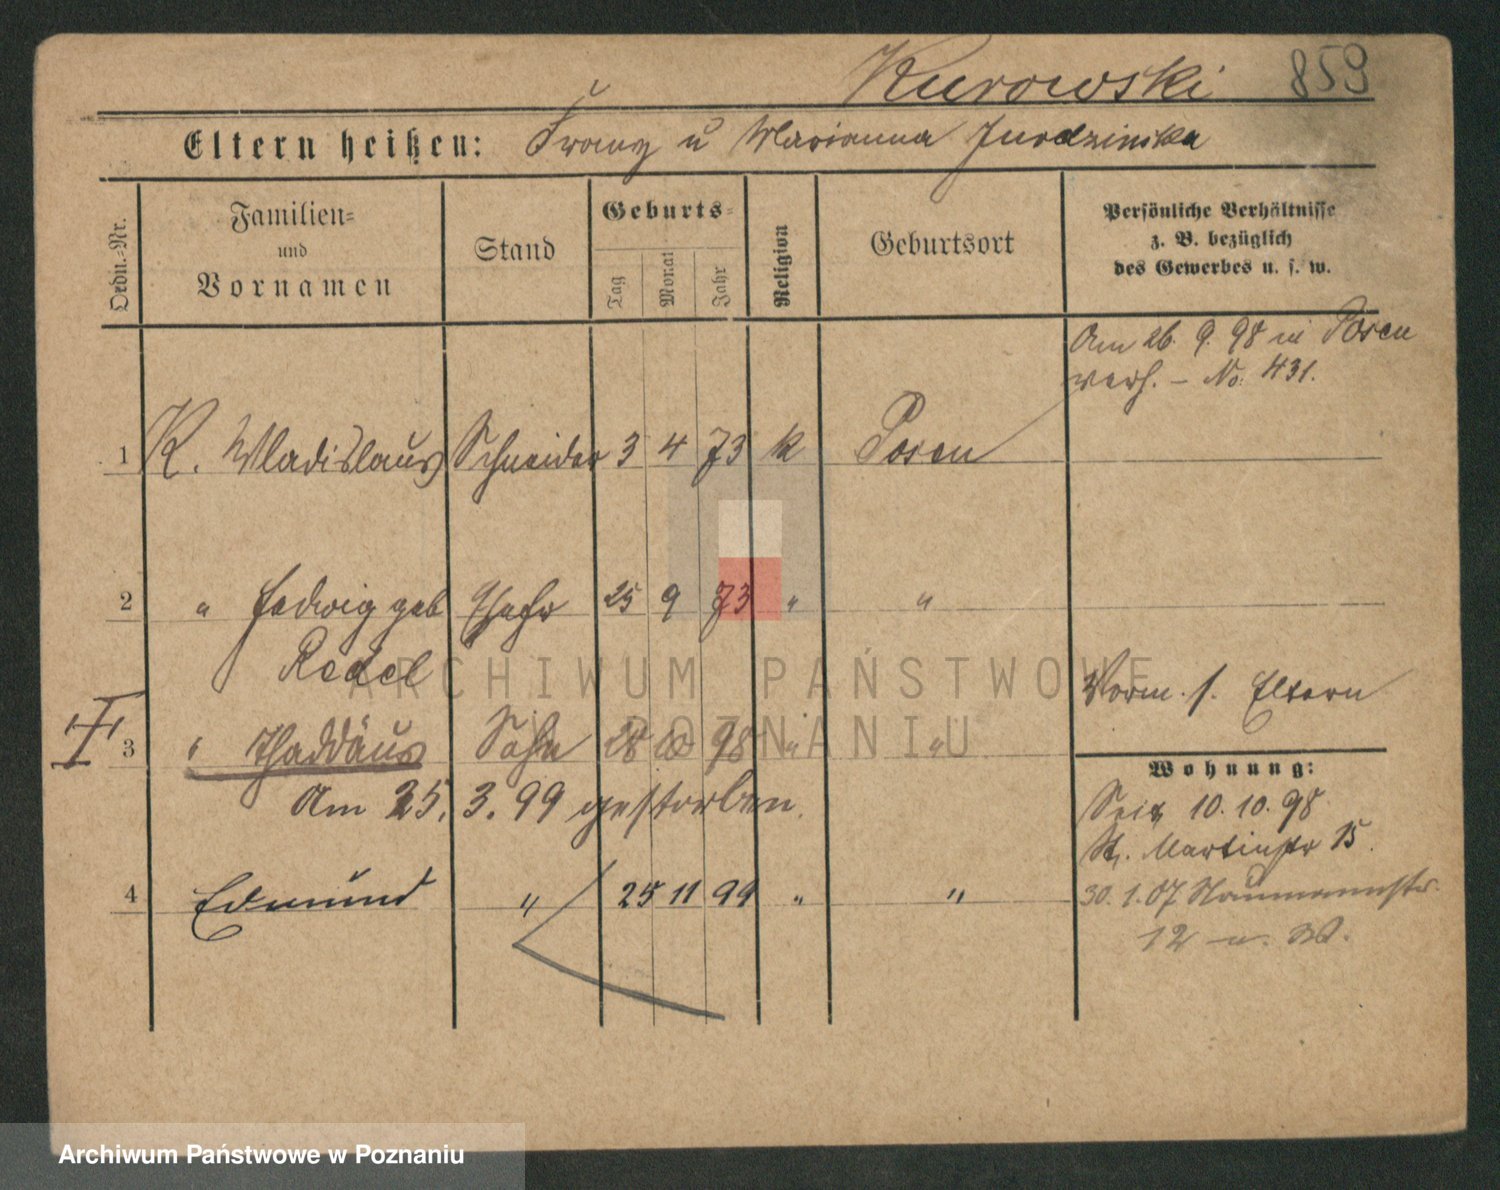 Kurowski 859
Eltern heißen: Franz u Marianna
Ordn.-Nr.
Familien- und Vornamen
Stand
Geburts-
Tag
Monat
Jahr
Religion
Geburtsort
Persönliche Verhältnisse
z. B. bezüglich
des Gewerbes u. s. w.
Am 26. 9. 98 in Posen
verh. – No. 431.
1 K. Wladislaus Schneider 3 4 73 k Posen
2 " Hedwig geb Ehefr 25 9 73 " "
Redel
Vorm. s. Eltern
3 " Thaddäus Sohn 28 10 98 " "
Am 25. 3. 99 gestorben.
Wohnung:
Seit 10. 10. 98
St. Martinstr 15.
4 Edmund " 25 11 99 " "
30. 1. 07 Naumannstr.
12 W.
ARCHIWUM PAŃSTWOWE
W POZNANIU
Archiwum Państwowe w Poznaniu